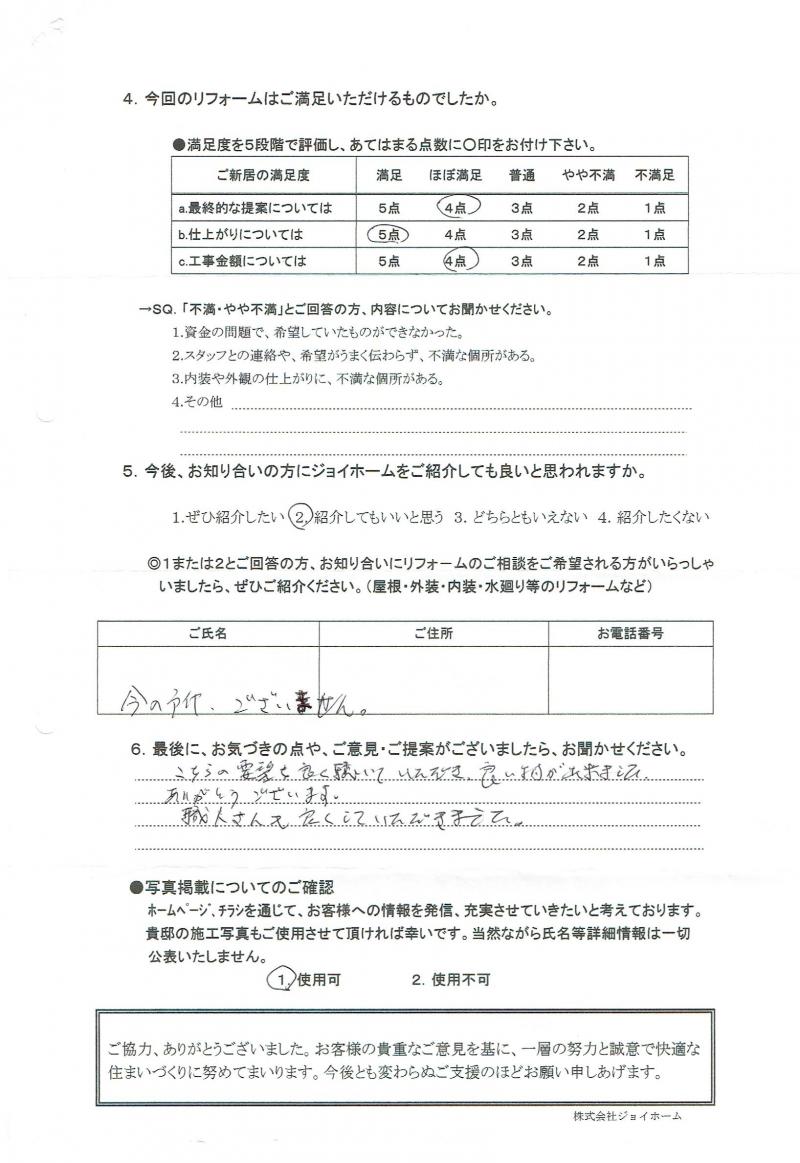 4. 今回のリフォームはご満足いただけるものでしたか。
●満足度を5段階で評価し、あてはまる点数に〇印をお付け下さい。
ご新居の満足度 満足 ほぼ満足 普通 やや不満 不満足
a.最終的な提案については 5点 4点 3点 2点 1点
b.仕上がりについては 5点 4点 3点 2点 1点
c.工事金額については 5点 4点 3点 2点 1点
→SQ.「不満・やや不満」とご回答の方、内容についてお聞かせください。
1.資金の問題で、希望していたものができなかった。
2.スタッフとの連絡や、希望がうまく伝わらず、不満な個所がある。
3.内装や外観の仕上がりに、不満な個所がある。
4.その他
5. 今後、お知り合いの方にジョイホームをご紹介しても良いと思われますか。
1.ぜひ紹介したい 2.紹介してもいいと思う 3. どちらともいえない 4. 紹介したくない
◎1または2とご回答の方、お知り合いにリフォームのご相談をご希望される方がいらっしゃ
いましたら、ぜひご紹介ください。(屋根・外装・内装・水廻り等のリフォームなど)
ご氏名 ご住所 お電話番号
今の所、ございません。
6. 最後に、お気づきの点や、ご意見・ご提案がございましたら、お聞かせください。
こちらの要望も良く聴いていただき、良い物が出来ました。
ありがとうございます。
職人さんも良くしていただきました。
●写真掲載についてのご確認
ホームページ、チラシを通じて、お客様への情報を発信、充実させていきたいと考えております。
貴邸の施工写真もご使用させて頂ければ幸いです。当然ながら氏名等詳細情報は一切
公表いたしません。
1. 使用可 2. 使用不可
ご協力、ありがとうございました。お客様の貴重なご意見を基に、一層の努力と誠意で快適な
住まいづくりに努めてまいります。今後とも変わらぬご支援のほどお願い申しあげます。
株式会社ジョイホーム